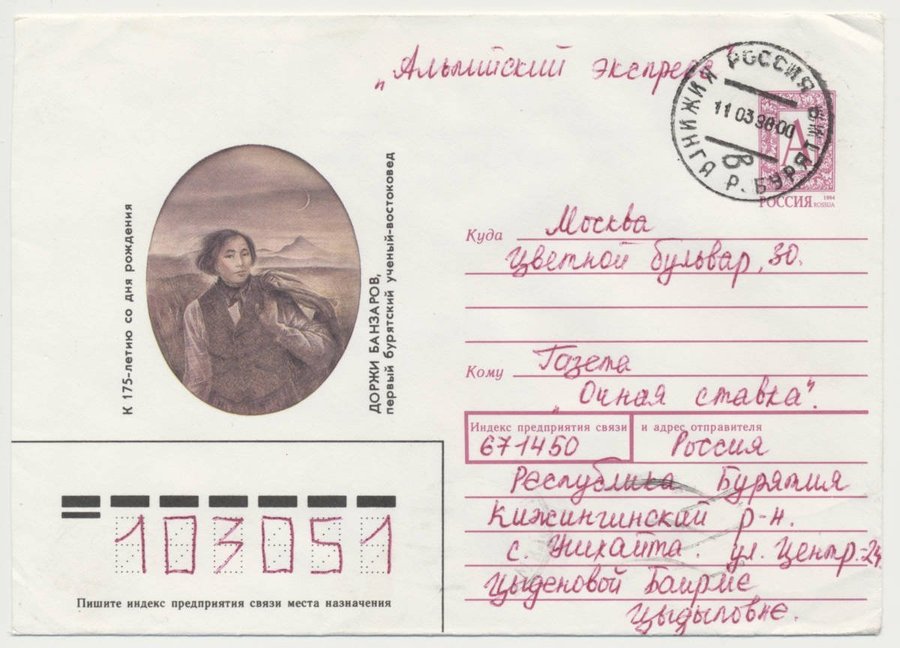 „Альпийский экспресс"
КИЖИНГА Р. БУРЯТИЯ РОССИЯ
11 03 98 00
В
А
РОССИЯ 1994
ROSSIJA
К 175-летию со дня рождения
ДОРЖИ БАНЗАРОВ,
первый бурятский ученый-востоковед
Куда Москва
Цветной бульвар, 30.
Кому Газета
„Очная ставка".
Индекс предприятия связи и адрес отправителя
671450 Россия
Республика Бурятия
Кижингинский р-н.
с. Ушхайта. ул. Центр.-24
Цыденовой Баирме
Цыдыповне.
103051
Пишите индекс предприятия связи места назначения